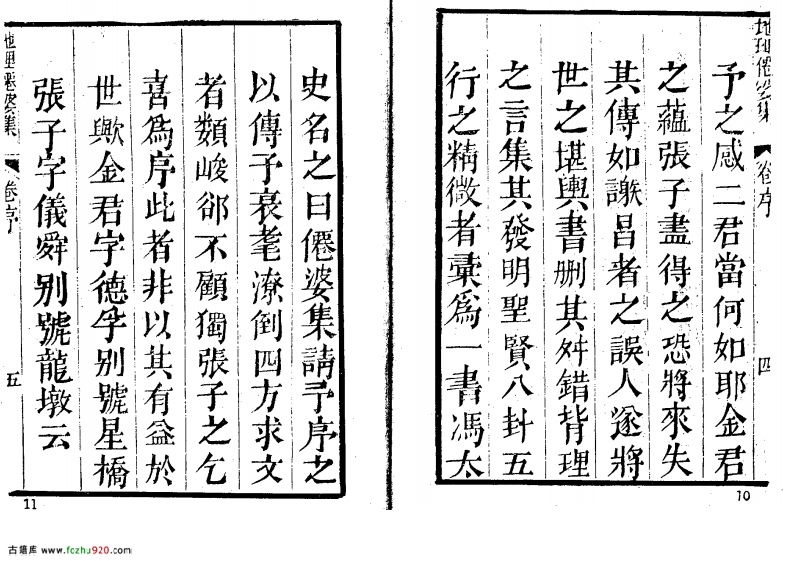 地理僊婆集
卷序
四
予之感二君當何如耶金君
之蘊張子盡得之恐將來失
其傳如謝昌者之誤人遂將
世之堪輿書刪其舛錯背理
之言集其發明聖賢八卦五
行之精微者彙爲一書馮太
10
史名之曰僊婆集請予序之
以傳予衰耄潦倒四方求文
者類峻郤不顧獨張子之乞
喜爲序此者非以其有益於
世歟金君字德孚别號星橋
張子字儀舜别號龍墩云
地理僊婆集
卷序
五
11
古籍库 www.fczhu920.com